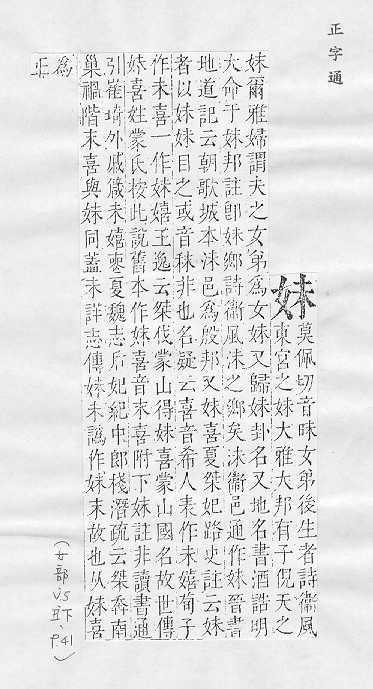 正字通
妹莫佩切音昧女弟後生者詩衞風
東宮之妹大雅大邦有子俔天之
妹爾雅婦謂夫之女弟爲女妹又歸妹卦名又地名書酒誥明
大命于妹邦註卽妹鄉詩衞風沬之鄉矣沬衞邑通作妹晉書
地道記云朝歌城本沬邑爲殷邦又妹喜夏桀妃路史註云妹
者以妹妹目之或音秣非也名疑云喜音希人表作末嬉荀子
作末喜一作妹嬉王逸云桀伐蒙山得妹喜蒙山國名故世傳
妹喜姓蒙氏按此說舊本作妹喜音末喜附下妹註非讀書通
引崔琦外戚箴末嬉喪夏魏志后妃紀中郎棧潛疏云桀奔南
巢禍階末喜與妹同蓋未詳志傳妹末譌作妹末故也从妹喜
為正
(女部 V.5 丑下、P.41)